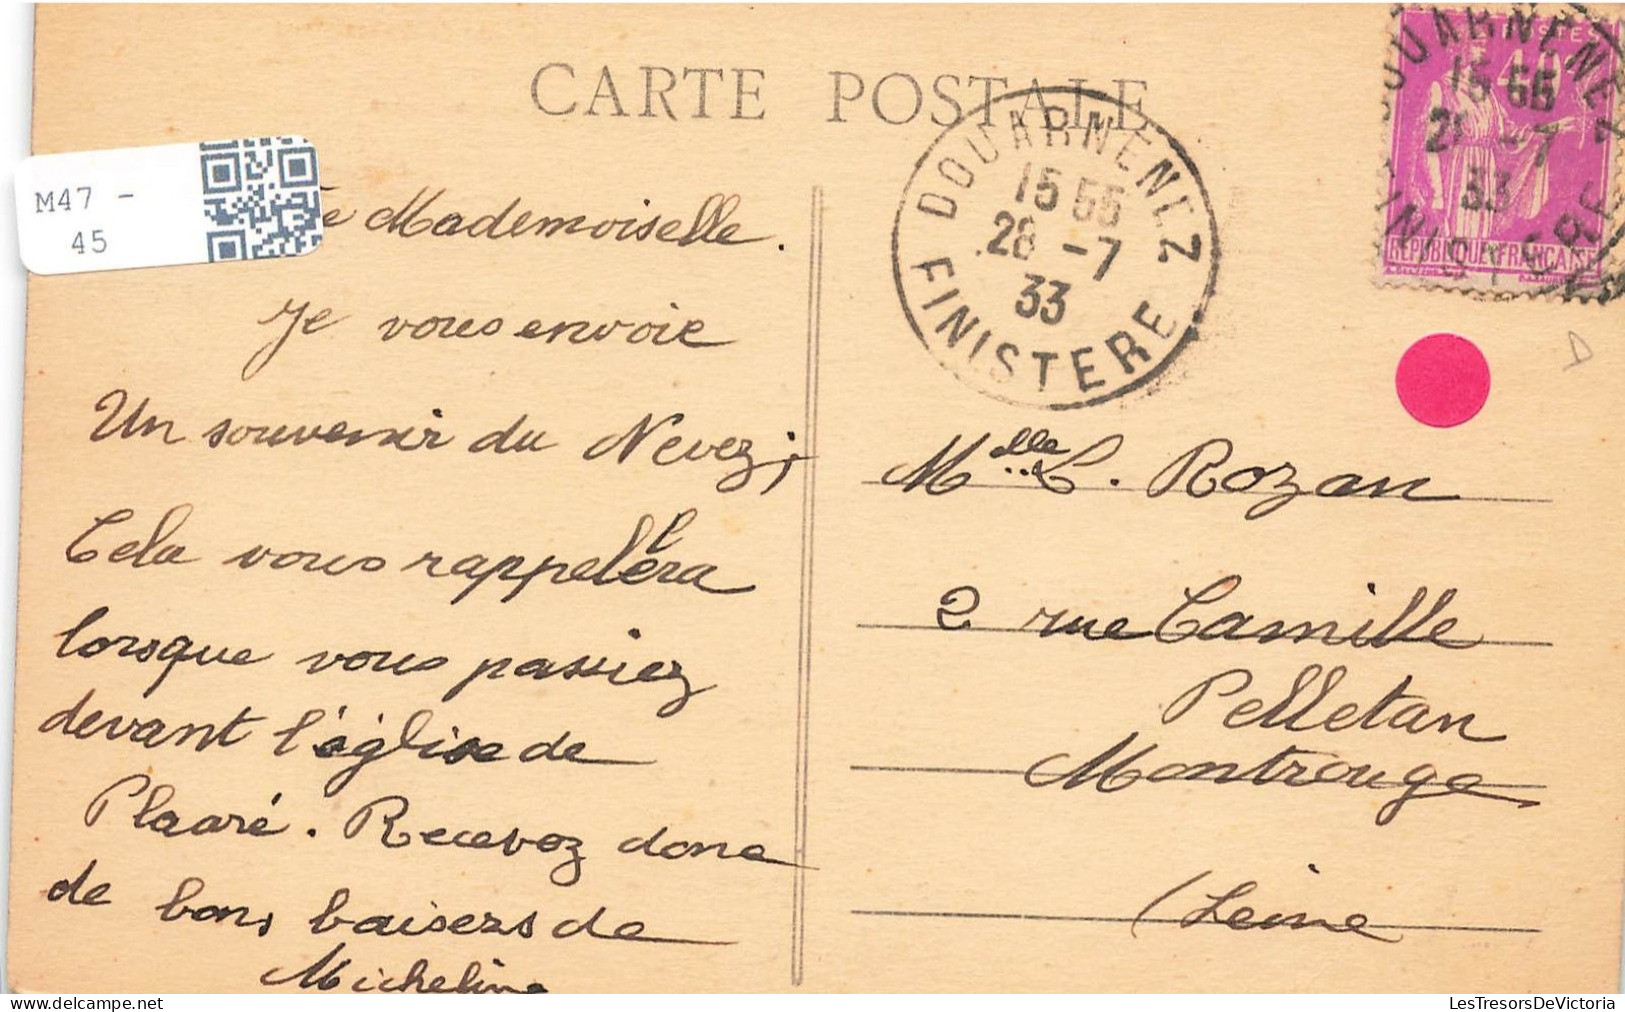 CARTE POSTALE
M47 -
45
Mademoiselle.
Je vous envoie
Un souvenir du Nevez ;
Cela vous rappellera
lorsque vous passiez
devant l'église de
Plaaré. Recevez donc
de bons baisers de
Micheline
DOUARNENEZ
15 55
28 -7
33
FINISTERE
DOUARNENEZ
15 55
28 -7
33
FINISTERE
POSTES
REPUBLIQUE FRANCAISE
Mlle C. Rozan
2 rue Camille
Pelletan
Montrouge
(Seine
LesTresorsDeVictoria